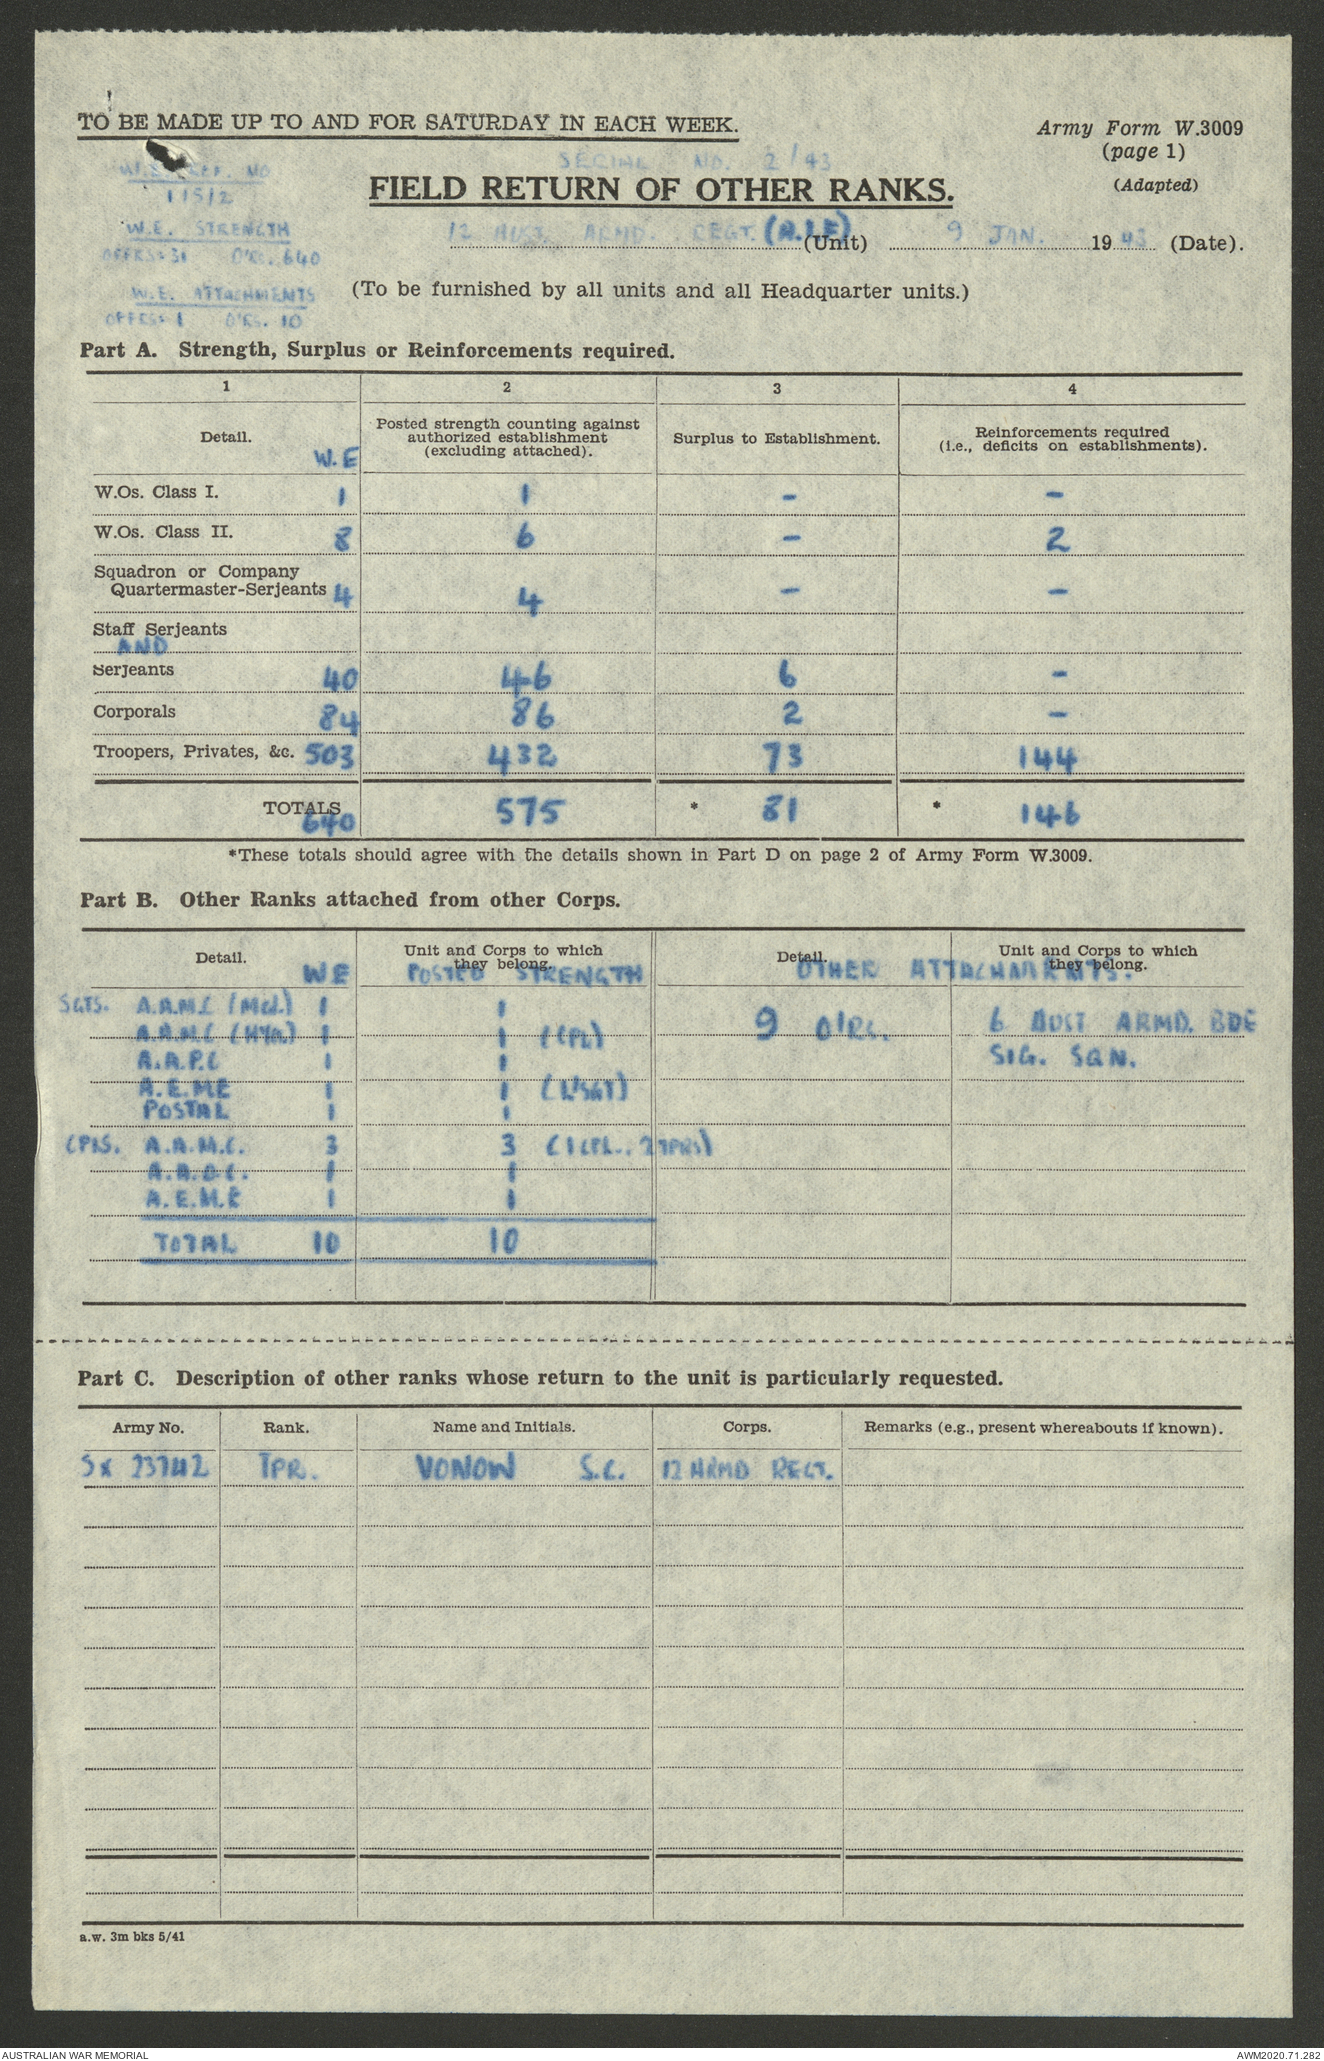 TO BE MADE UP TO AND FOR SATURDAY IN EACH WEEK.
Army Form W.3009
(page 1)
(Adapted)
W.E. REF. NO
115/2
SERIAL NO. 2/43
FIELD RETURN OF OTHER RANKS.
W.E. STRENGTH
OFFRS: 31 O'RS. 640
12 AUST. ARMD. REGT. (A.I.F) (Unit) 9 JAN. 1943 (Date).
W.E. ATTACHMENTS
OFFRS: 1 O'RS. 10
(To be furnished by all units and all Headquarter units.)
Part A. Strength, Surplus or Reinforcements required.
1 2 3 4
Detail. W.E Posted strength counting against authorized establishment (excluding attached). Surplus to Establishment. Reinforcements required (i.e., deficits on establishments).
W.Os. Class I. 1 1 - -
W.Os. Class II. 8 6 - 2
Squadron or Company
Quartermaster-Serjeants 4 4 - -
Staff Serjeants
AND
Serjeants 40 46 6 -
Corporals 84 86 2 -
Troopers, Privates, &c. 503 432 73 144
TOTALS 640 575 * 81 * 146
*These totals should agree with the details shown in Part D on page 2 of Army Form W.3009.
Part B. Other Ranks attached from other Corps.
Detail. Unit and Corps to which they belong. Detail. Unit and Corps to which they belong.
WE POSTED STRENGTH OTHER ATTACHMENTS.
SGTS. A.A.M.C 1 1
A.A.M.C (HYG) 1 1 (CPL) 9 O'RS. 6 AUST ARMD. BDE
A.A.P.C 1 1 SIG. SQN.
A.E.M.E 1 1 (L/SGT)
POSTAL 1 1
CPLS. A.A.M.C. 3 3 (1 CPL., 2 TPRS)
A.A.O.C. 1 1
A.E.M.E 1 1
TOTAL 10 10
Part C. Description of other ranks whose return to the unit is particularly requested.
Army No. Rank. Name and Initials. Corps. Remarks (e.g., present whereabouts if known).
SX 23742 TPR. VONOW S.C. 12 ARMD REGT.
a.w. 3m bks 5/41
AUSTRALIAN WAR MEMORIAL
AWM2020.71.282